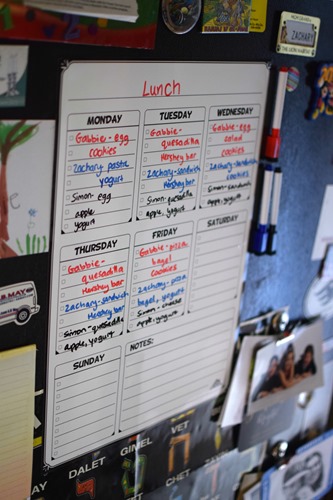 ZACHARY
Lunch
MONDAY
Gabbie - egg
cookies
Zachary pasta
yogurt
Simon - egg
apple
yogurt
TUESDAY
Gabbie -
quesadilla
Hershey bar
Zachary - sandwich
Hershey bar
Simon - quesadilla
apple, yogurt
WEDNESDAY
Gabbie - egg
salad
cookies
Zachary - sandwich
cookies
Simon - sandwich
apple, yogurt
THURSDAY
Gabbie -
quesadilla
Hershey bar
Zachary - sandwich
Hershey bar
Simon - quesadilla
apple, yogurt
FRIDAY
Gabbie - pizza
bagel
cookies
Zachary - pizza
bagel, yogurt
Simon - cheese
apple, yogurt
SATURDAY
SUNDAY
NOTES:
DALET
GIMEL
VET
CHET